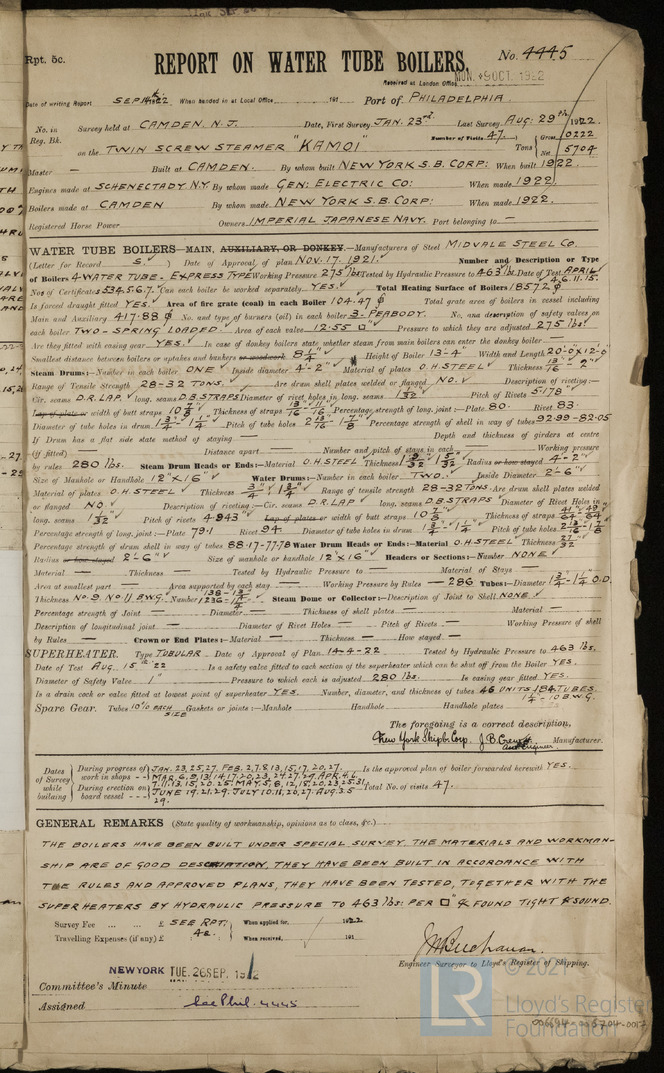 Rpt. 5c.
REPORT ON WATER TUBE BOILERS.
No. 4445
Received at London Office MON. 9 OCT. 1922
Date of writing Report SEP 14th 1922 When handed in at Local Office 191 Port of PHILADELPHIA.
No. in Survey held at CAMDEN. N.J. Date, First Survey JAN. 23rd Last Survey AUG: 29th 1922.
Reg. Bk. Number of Visits 47
on the TWIN SCREW STEAMER "KAMOI" Tons Gross 10222 Net 5704
Master — Built at CAMDEN. By whom built NEW YORK S.B. CORP: When built 1922.
Engines made at SCHENECTADY. N.Y. By whom made GEN: ELECTRIC CO: When made 1922
Boilers made at CAMDEN By whom made NEW YORK S.B. CORP: When made 1922.
Registered Horse Power Owners IMPERIAL JAPANESE NAVY. Port belonging to —
WATER TUBE BOILERS—MAIN, AUXILIARY, OR DONKEY.—Manufacturers of Steel MIDVALE STEEL CO.
(Letter for Record S.) Date of Approval of plan NOV. 17. 1921. Number and Description or Type
of Boilers 4 WATER TUBE - EXPRESS TYPE Working Pressure 275 lbs Tested by Hydraulic Pressure to 463 lbs Date of Test APRIL 4.6.11.15.
No. of Certificate 534.5.6.7. Can each boiler be worked separately YES. Total Heating Surface of Boilers 18572
Is forced draught fitted YES. Area of fire grate (coal) in each Boiler 104.47 Total grate area of boilers in vessel including
Main and Auxiliary 417.88 No. and type of burners (oil) in each boiler 3 - PEABODY. No. and description of safety valves on
each boiler TWO - SPRING LOADED. Area of each valve 12.55 □" Pressure to which they are adjusted 275 lbs
Are they fitted with easing gear YES. In case of donkey boilers state whether steam from main boilers can enter the donkey boiler —
Smallest distance between boilers or uptakes and bunkers or woodwork 8 1/4" Height of Boiler 13'-4" Width and Length 20'-0" x 12'-0"
Steam Drums:—Number in each boiler ONE Inside diameter 4'-2" Material of plates O.H. STEEL Thickness
Range of Tensile Strength 28-32 TONS. Are drum shell plates welded or flanged NO. Description of riveting:—
Cir. seams D.R. LAP. long. seams D.B. STRAPS Diameter of rivet holes in long. seams 1 1/32" Pitch of Rivets 5.178
Lap of plate or width of butt straps Thickness of straps Percentage strength of long. joint:—Plate 80. Rivet 83.
Diameter of tube holes in drum Pitch of tube holes Percentage strength of shell in way of tubes 92.99-82.05
If Drum has a flat side state method of staying — Depth and thickness of girders at centre
(if fitted) — Distance apart — Number and pitch of stays in each — Working pressure
by rules 280 lbs. Steam Drum Heads or Ends:—Material O.H. STEEL Thickness Radius or how stayed 4'-2"
Size of Manhole or Handhole 12" x 16" Water Drums:—Number in each boiler TWO. Inside Diameter 2'-6"
Material of plates O.H. STEEL Thickness Range of tensile strength 28-32 TONS. Are drum shell plates welded
or flanged NO Description of riveting:—Cir. seams D.R. LAP long. seams D.B. STRAPS Diameter of Rivet Holes in
long. seams 1 1/32" Pitch of rivets 4.943 Lap of plates or width of butt straps Thickness of straps
Percentage strength of long. joint:—Plate 79.1 Rivet 94. Diameter of tube holes in drum Pitch of tube holes
Percentage strength of drum shell in way of tubes 88.17-77.78 Water Drum Heads or Ends:—Material O.H. STEEL Thickness 27/32
Radius or how stayed 2'-6" Size of manhole or handhole 12" x 16" Headers or Sections:—Number NONE
Material — Thickness — Tested by Hydraulic Pressure to — Material of Stays —
Area at smallest part — Area supported by each stay — Working Pressure by Rules — 286 Tubes:—Diameter 1 3/4 - 1 1/4 O.D.
Thickness No. 9 No. 11 B.W.G. Number Steam Dome or Collector:—Description of Joint to Shell NONE
Percentage strength of Joint — Diameter — Thickness of shell plates — Material —
Description of longitudinal joint — Diameter of Rivet Holes — Pitch of Rivets — Working Pressure of shell
by Rules — Crown or End Plates:—Material — Thickness — How stayed —
SUPERHEATER. Type TUBULAR Date of Approval of Plan 14-4-22 Tested by Hydraulic Pressure to 463 lbs.
Date of Test AUG. 15th 22 Is a safety valve fitted to each section of the superheater which can be shut off from the Boiler YES.
Diameter of Safety Valve 1" Pressure to which each is adjusted 280 lbs. Is easing gear fitted YES.
Is a drain cock or valve fitted at lowest point of superheater YES. Number, diameter, and thickness of tubes 46 UNITS 184 TUBES. 1 1/4" - 10 B.W.G.
Spare Gear. Tubes 10% EACH SIZE Gaskets or joints:—Manhole Handhole Handhole plates
The foregoing is a correct description,
New York Shipb. Corp. Manufacturer.
Dates of Survey while building
During progress of work in shops -- JAN. 23, 25, 27. FEB. 2, 7, 8, 13, 15, 17, 20, 27. MAR. 6, 9, 13, 14, 17, 20, 23, 24, 27, 29. APR. 4, 6,
During erection on board vessel --- 7, 11, 13, 15, 20, 25. MAY. 5, 8, 12, 18, 20, 23, 25, 31. JUNE 19, 21, 29. JULY 10, 11, 20, 27. AUG. 3, 5 29.
Is the approved plan of boiler forwarded herewith YES.
Total No. of visits 47.
GENERAL REMARKS (State quality of workmanship, opinions as to class, &c.)
THE BOILERS HAVE BEEN BUILT UNDER SPECIAL SURVEY. THE MATERIALS AND WORKMAN-
SHIP ARE OF GOOD DESCRIPTION, THEY HAVE BEEN BUILT IN ACCORDANCE WITH
THE RULES AND APPROVED PLANS, THEY HAVE BEEN TESTED, TOGETHER WITH THE
SUPERHEATERS BY HYDRAULIC PRESSURE TO 463 lbs. PER □" & FOUND TIGHT & SOUND.
Survey Fee ... ... £ SEE RPT. When applied for, 1922
Travelling Expenses (if any) £ 4c. When received, 191
J M Buchanan.
Engineer Surveyor to Lloyd's Register of Shipping.
NEW YORK TUE. 26 SEP. 1922
Committee's Minute
Assigned See Phil. 4445
© 2021
LR
Lloyd's Register
Foundation